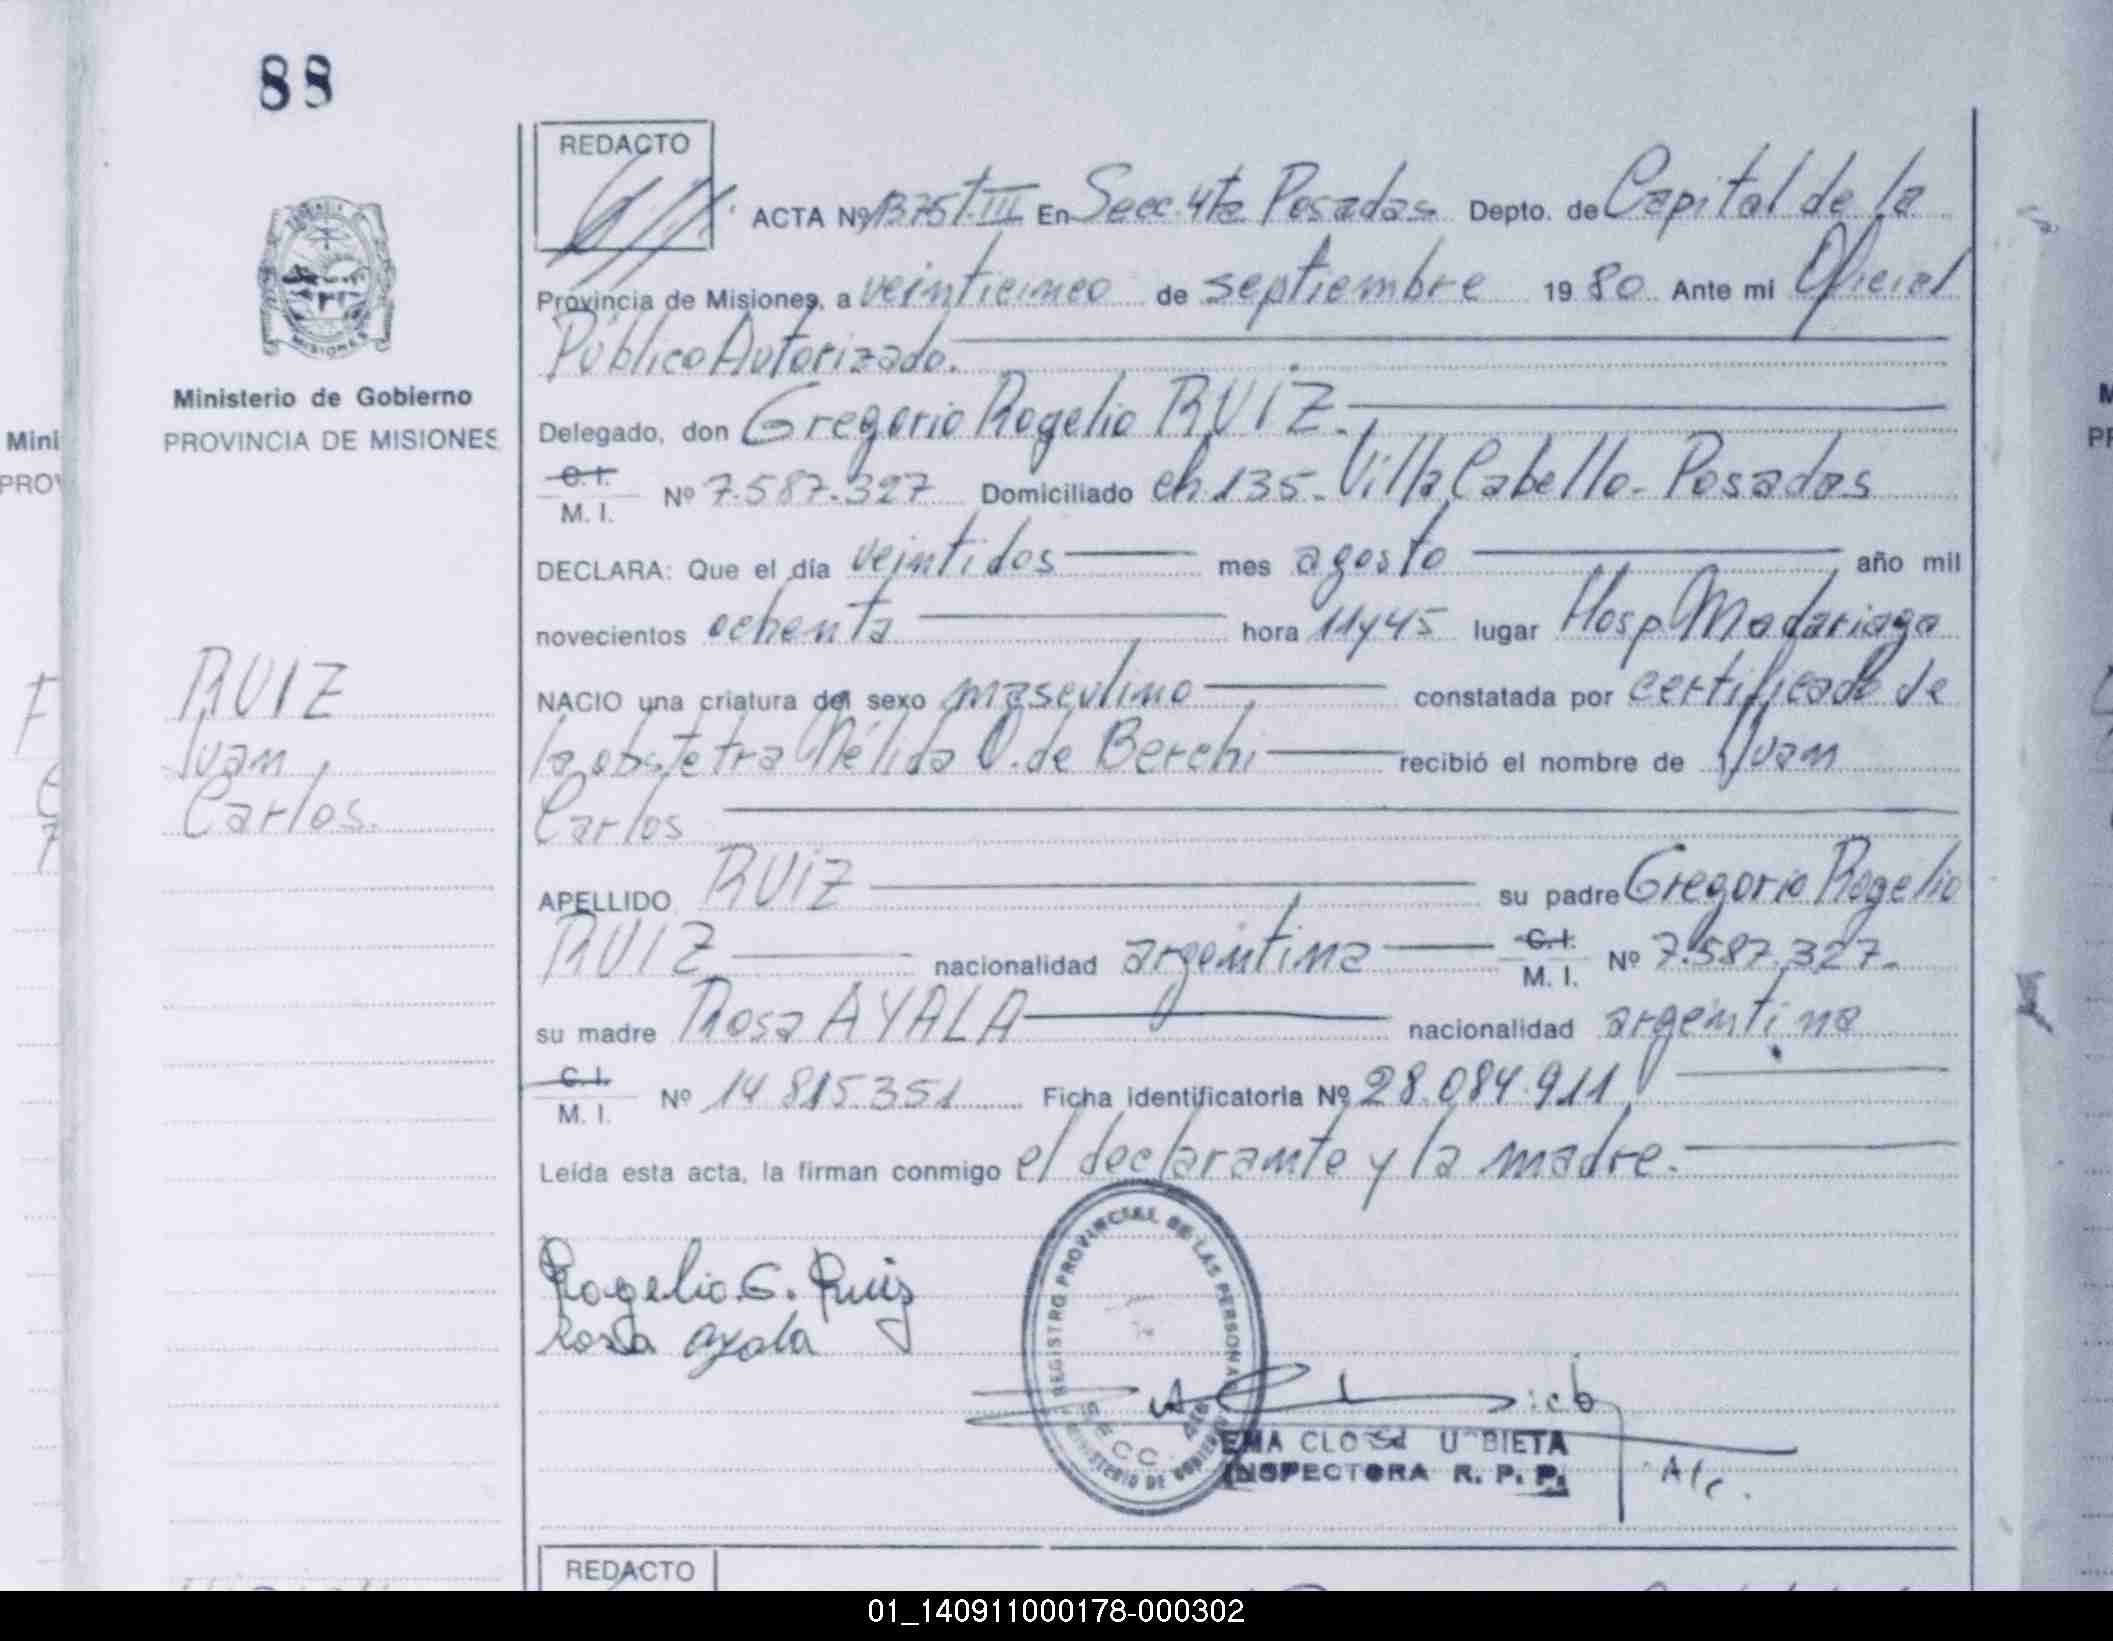 88
REDACTO
ACTA Nº 1375 T. III En Secc. 4ta Posadas Depto. de Capital de la
Provincia de Misiones, a veinticinco de septiembre 1980 Ante mi Oficial
Público Autorizado.
Ministerio de Gobierno
PROVINCIA DE MISIONES
Delegado, don Gregorio Rogelio RUIZ
C. I.
M. I. Nº 7.587.327 Domiciliado ch. 135 - Villa Cabello - Posadas
DECLARA: Que el día veintidos mes agosto año mil
novecientos ochenta hora 11y45 lugar Hosp. Madariaga
NACIO una criatura del sexo masculino constatada por certificado de
la obstetra Nélida O. de Berchi recibió el nombre de Juan
Carlos
RUIZ
Juan
Carlos.
APELLIDO RUIZ su padre Gregorio Rogelio
RUIZ nacionalidad argentina C. I.
M. I. Nº 7.587.327.
su madre Rosa AYALA nacionalidad argentina
C. I.
M. I. Nº 14.815.351 Ficha identificatoria Nº 28.084.911
Leída esta acta, la firman conmigo el declarante y la madre.
Rogelio G. Ruiz
Rosa Ayala
REGISTRO PROVINCIAL DE LAS PERSONAS
SECC. 4ta
MINISTERIO DE GOBIERNO
EMA
INSPECTORA R. P. P.
A/c.
REDACTO
MISIONES
01_140911000178-000302